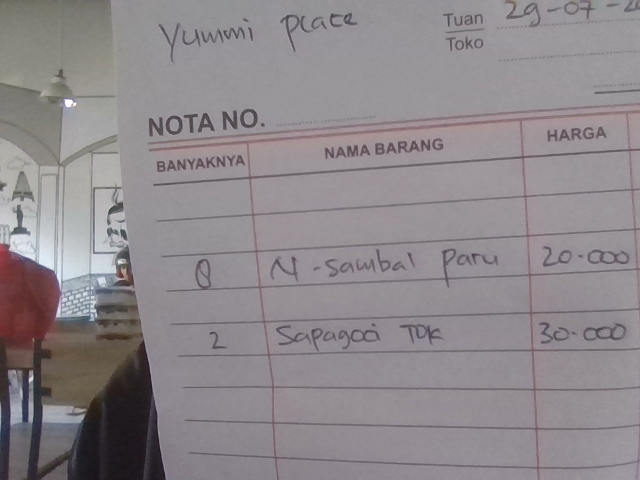 Yummi place
Tuan 29-07-20
Toko
NOTA NO.
BANYAKNYA NAMA BARANG HARGA
8 N-sambal paru 20.000
2 Sapagoci TOK 30.000